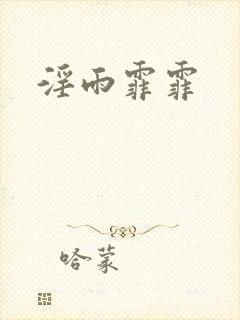 淫雨霏霏
哈蒙